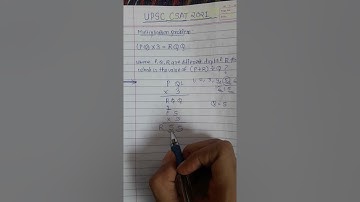 UPSC CSAT 2021
Multiplication problem
(PQ) x 3 = RQQ
where P, Q, R are different digits & R ≠ 0
What is the value of (P+R) ÷ Q ?
P Q
x 3
R Q Q
Q = 5
P 5
x 3
R 5 5